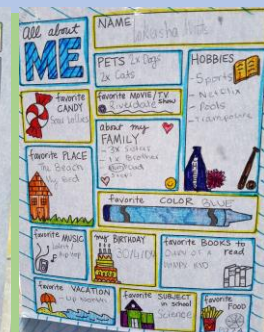 All about
ME
NAME
PETS 2x Dogs
2x Cats
HOBBIES
- Sports
- Netflix
- Pools
- Trampoline
favorite
CANDY
Sour Lollies
favorite MOVIE/TV
Riverdale show
about my
FAMILY
- 3x Sisters
- 1x Brother
Dad
favorite PLACE
The Beach
My Bed
favorite COLOR BLUE
favorite MUSIC
Hip Hop
my BIRTHDAY
30/4/
favorite BOOKS to
read
Diary of a
Wimpy Kid
favorite VACATION
- Up North
favorite SUBJECT
in school
Science
favorite
FOOD